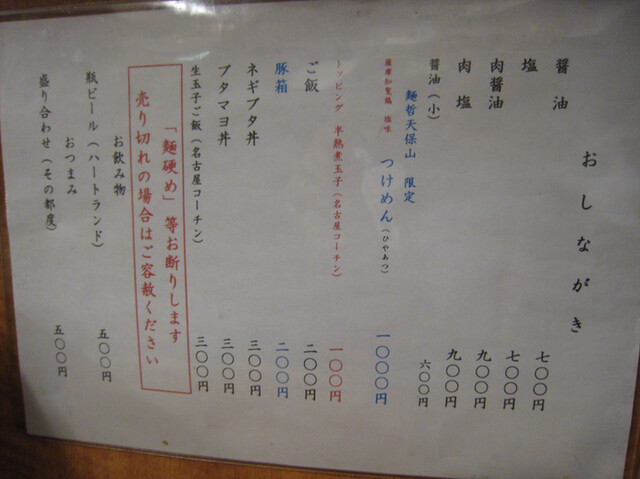 おしながき
醤油 七〇〇円
塩 七〇〇円
肉醤油 九〇〇円
肉塩 九〇〇円
醤油（小） 六〇〇円
麺哲天保山 限定
薩摩知覧鶏 塩味 つけめん（ひやあつ） 一〇〇〇円
トッピング 半熟煮玉子（名古屋コーチン） 一〇〇円
ご飯 二〇〇円
豚箱 二〇〇円
ネギブタ丼 三〇〇円
ブタマヨ丼 三〇〇円
生玉子ご飯（名古屋コーチン） 三〇〇円
「麺硬め」等お断りします
売り切れの場合はご容赦ください
お飲み物
瓶ビール（ハートランド） 五〇〇円
おつまみ
盛り合わせ（その都度） 五〇〇円